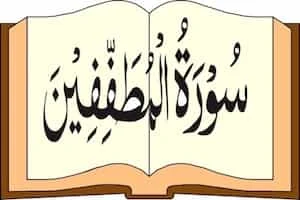 سُورَةُ الْمُطَفِّفِينَ